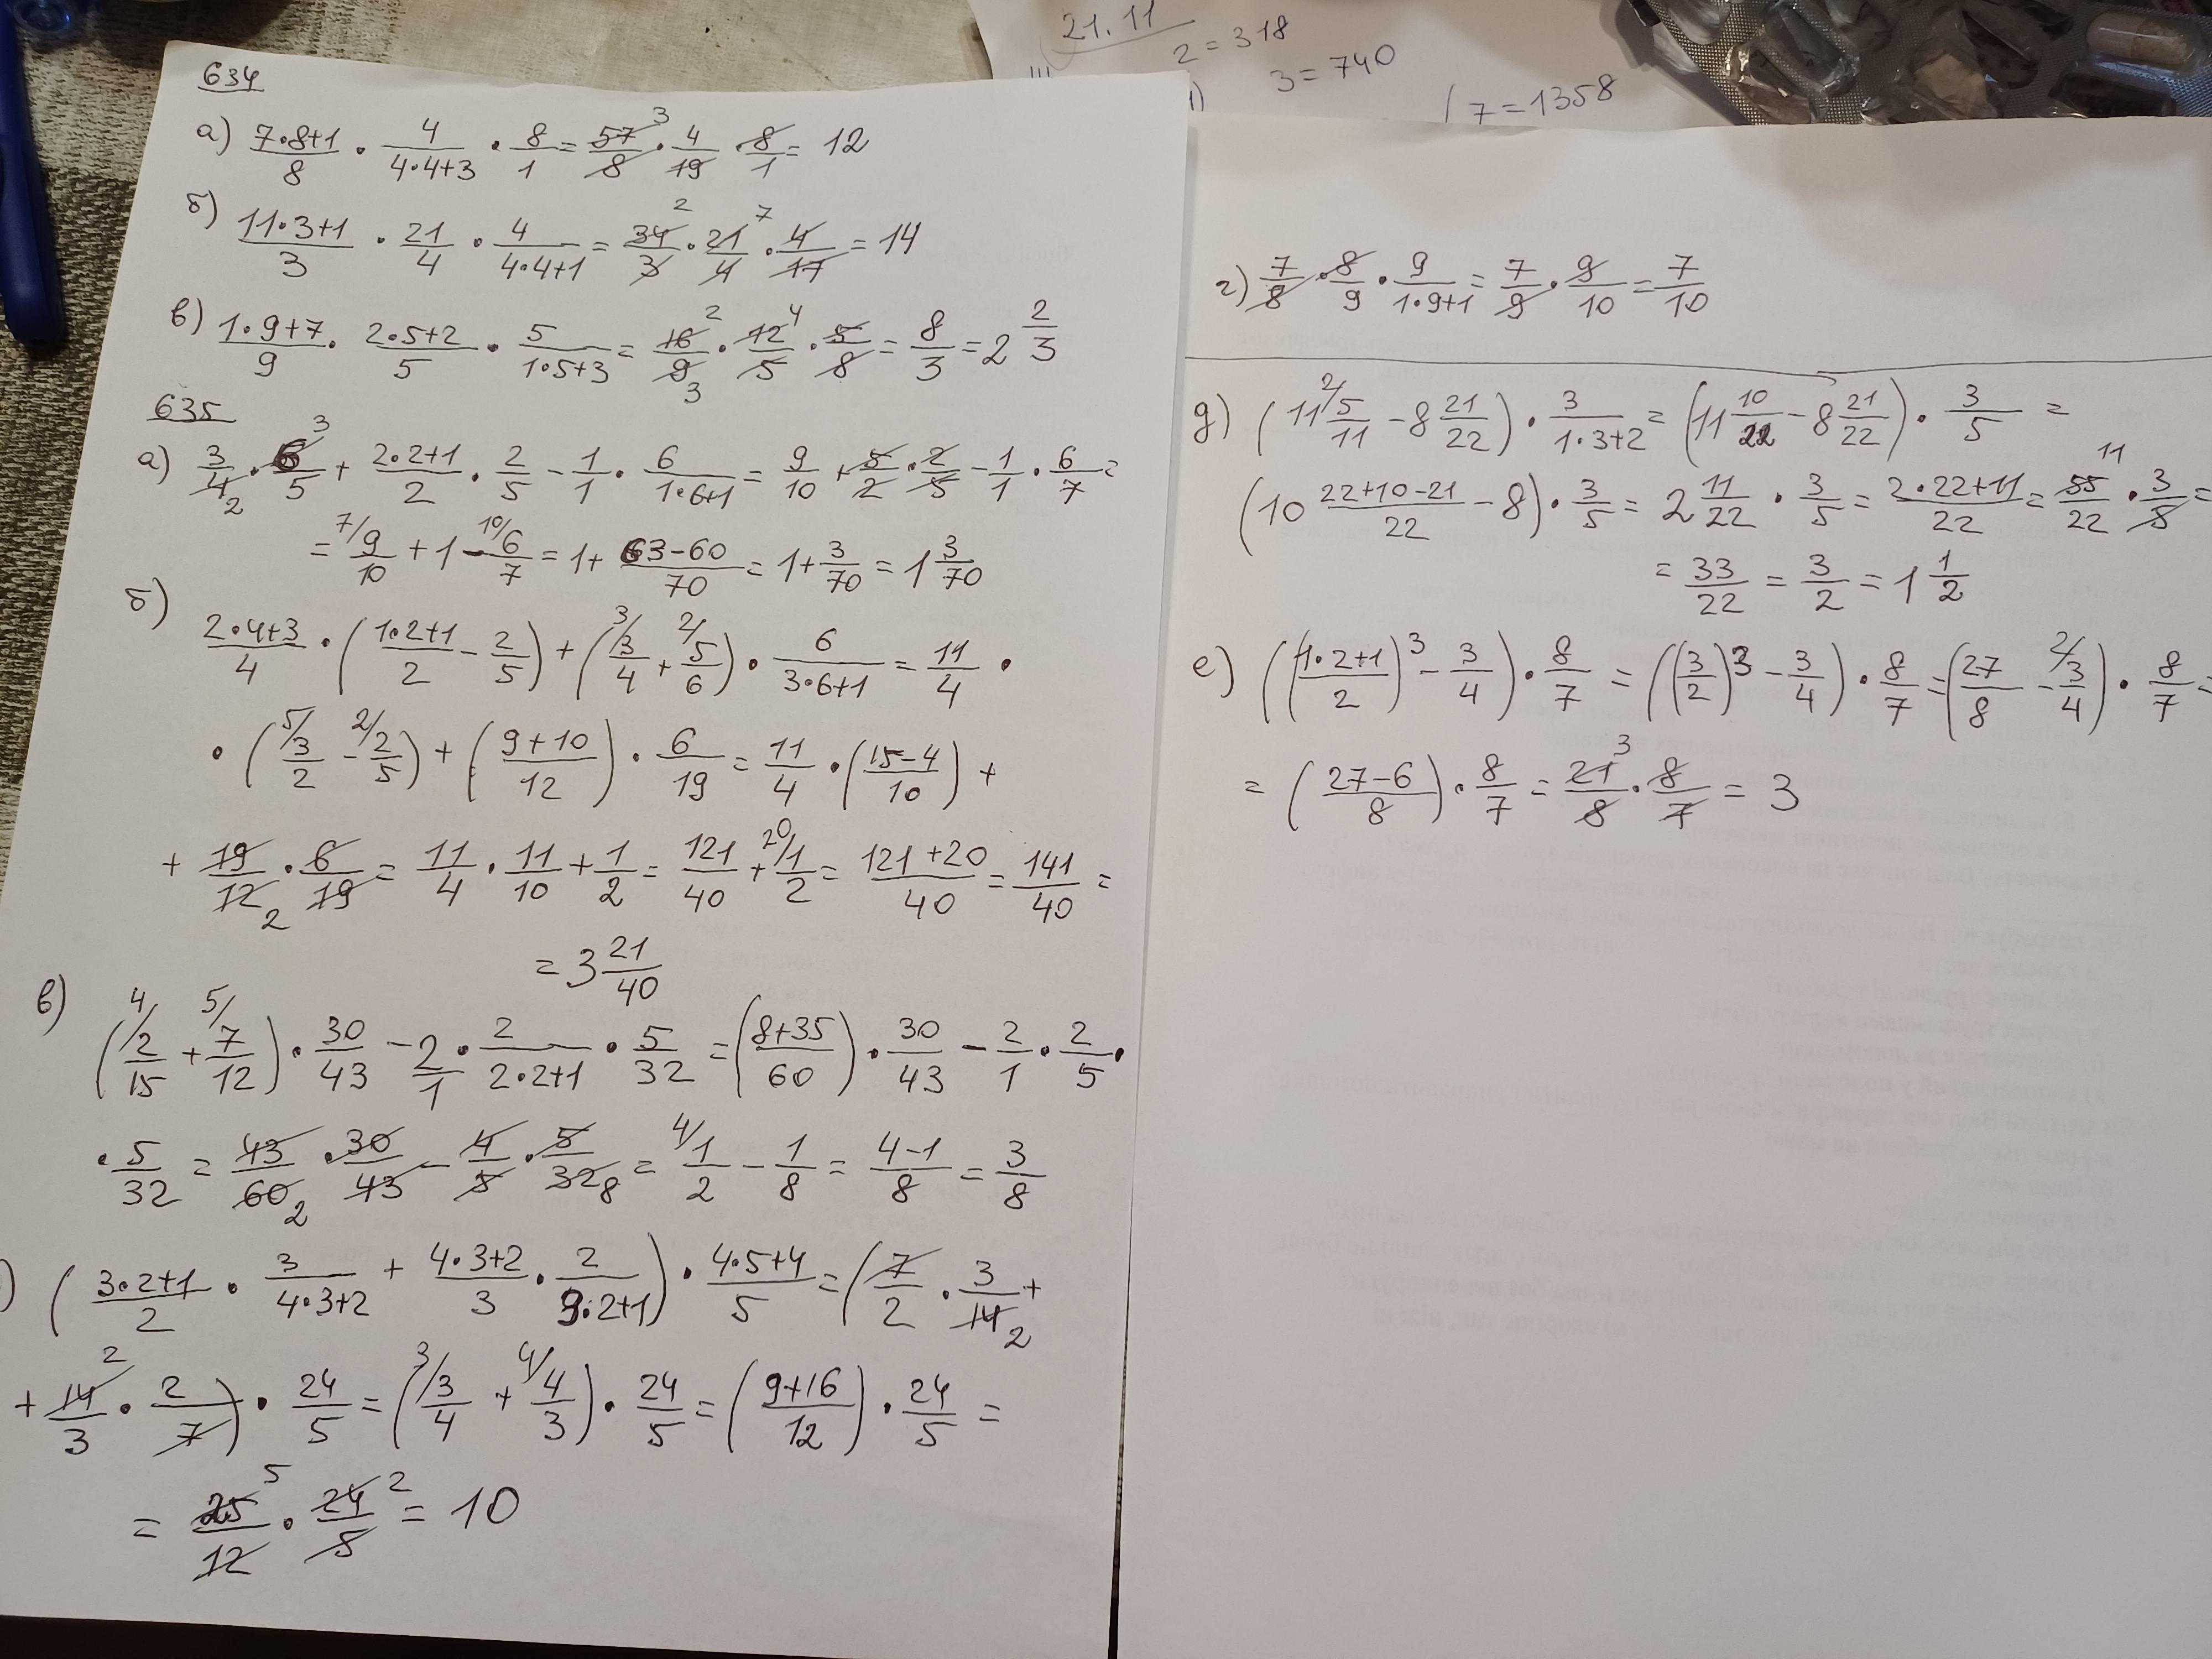 21.11
2 = 318
3 = 740
7 = 1358
634
а) (7·8+1)/8 · 4/(4·4+3) · 8/1 = 57/8 · 4/19 · 8/1 = 12
3
б) (11·3+1)/3 · 21/4 · 4/(4·4+1) = 34/3 · 21/4 · 4/17 = 14
2 7
в) (1·9+7)/9 · (2·5+2)/5 · 5/(1·5+3) = 16/9 · 12/5 · 5/8 = 8/3 = 2 2/3
2 4 3
635
а) 3/4 · 6/5 + (2·2+1)/2 · 2/5 - 1/1 · 6/(1·6+1) = 9/10 + 5/2 · 2/5 - 1/1 · 6/7 =
3 2
= 7/ 9/10 + 1 - 10/ 6/7 = 1 + (63-60)/70 = 1 + 3/70 = 1 3/70
б)
(2·4+3)/4 · ((1·2+1)/2 - 2/5) + (3/ 3/4 + 2/ 5/6) · 6/(3·6+1) = 11/4 ·
· (5/ 3/2 - 2/ 2/5) + ((9+10)/12) · 6/19 = 11/4 · ((15-4)/10) +
+ 19/12 · 6/19 = 11/4 · 11/10 + 1/2 = 121/40 + 20/ 1/2 = (121+20)/40 = 141/40 =
2
= 3 21/40
в) (4/ 2/15 + 5/ 7/12) · 30/43 - 2/1 · 2/(2·2+1) · 5/32 = ((8+35)/60) · 30/43 - 2/1 · 2/5 ·
· 5/32 = 43/60 · 30/43 - 4/5 · 5/32 = 4/ 1/2 - 1/8 = (4-1)/8 = 3/8
2 8
) ((3·2+1)/2 · 3/(4·3+2) + (4·3+2)/3 · 2/(3·2+1)) · (4·5+4)/5 = (7/2 · 3/14 +
2
+ 14/3 · 2/7) · 24/5 = (3/ 3/4 + 4/ 4/3) · 24/5 = ((9+16)/12) · 24/5 =
2
= 25/12 · 24/5 = 10
5 2
г) 7/8 · 8/9 · 9/(1·9+1) = 7/9 · 9/10 = 7/10
д) (11 2/ 5/11 - 8 21/22) · 3/(1·3+2) = (11 10/22 - 8 21/22) · 3/5 =
(10 (22+10-21)/22 - 8) · 3/5 = 2 11/22 · 3/5 = (2·22+11)/22 = 55/22 · 3/5 =
11
= 33/22 = 3/2 = 1 1/2
е) (((1·2+1)/2)³ - 3/4) · 8/7 = ((3/2)³ - 3/4) · 8/7 = (27/8 - 2/ 3/4) · 8/7 =
= ((27-6)/8) · 8/7 = 21/8 · 8/7 = 3
3